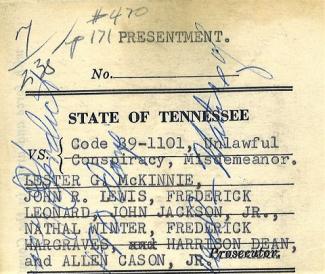 #470
p 171 PRESENTMENT.
No.
STATE OF TENNESSEE
VS. Code 39-1101, Unlawful
Conspiracy, Misdemeanor.
LESTER G. McKINNIE,
JOHN R. LEWIS, FREDERICK
LEONARD, JOHN JACKSON, JR.,
NATHAL WINTER, FREDERICK
HARGRAVES, and HARRISON DEAN,
and ALLEN CASON, JR.
Prosecutor.